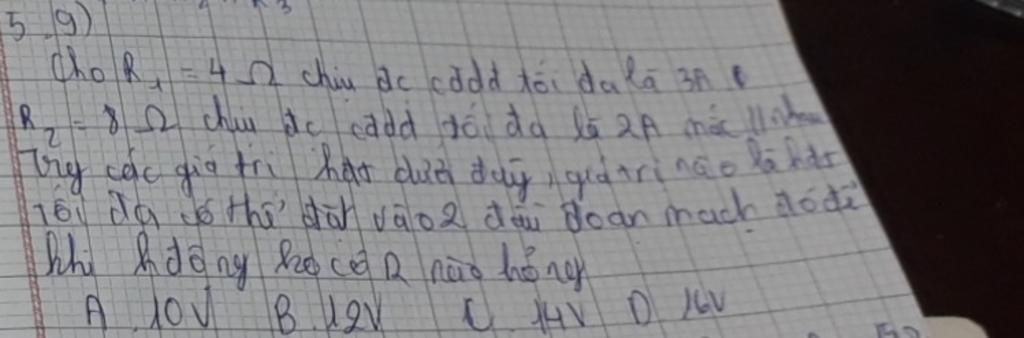 5 9)
Cho R₁ = 4 Ω chịu đc cđdđ tối đa là 3A
R₂ = 8 Ω chịu đc cđdđ tối đa là 2A mắc // nhau
Trg các giá trị hđt dưới đây, giá trị nào là hđt
tối đa có thể đặt vào 2 đầu đoạn mạch đó để
khi hđộng ko có R nào hỏng
A 10V B. 12V C. 14V D 16V